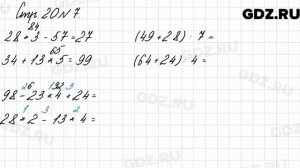 GDZ.RU
Стр. 20 № 7.
84
28 * 3 - 57 = 27 (49 + 28) : 7 =
65
34 + 13 * 5 = 99 (64 + 24) : 4 =
2 1 3
98 - 23 * 4 + 24 =
1 3 2
28 * 2 - 13 * 4 =
GDZ.RU